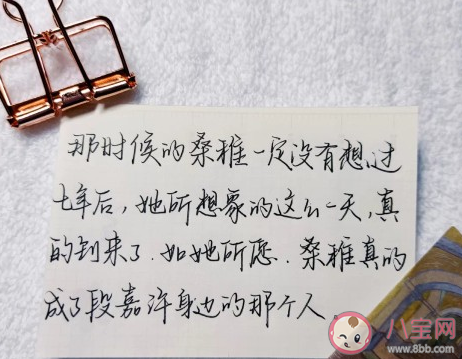 那时候的桑稚一定没有想过
七年后，她所想象的这么一天，真
的到来了．如她所愿．桑稚真的
成了段嘉许身边的那个人
八宝网
www.8bb.com